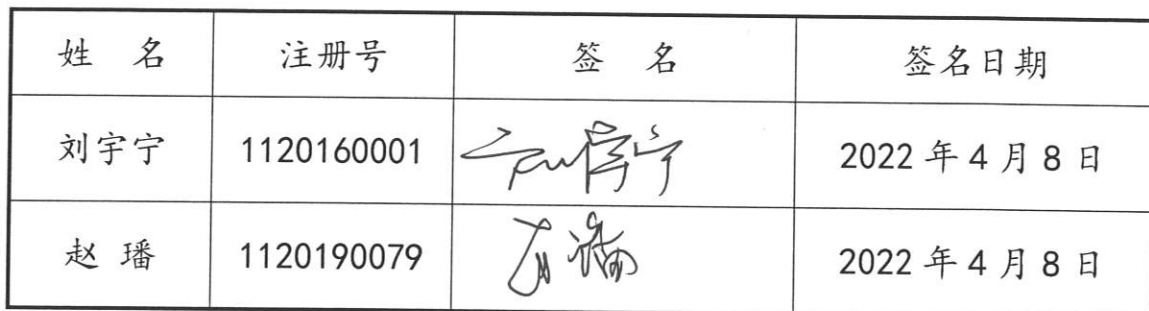 姓 名 注册号 签 名 签名日期
刘宇宁 1120160001 刘宇宁 2022年4月8日
赵 璠 1120190079 2022年4月8日